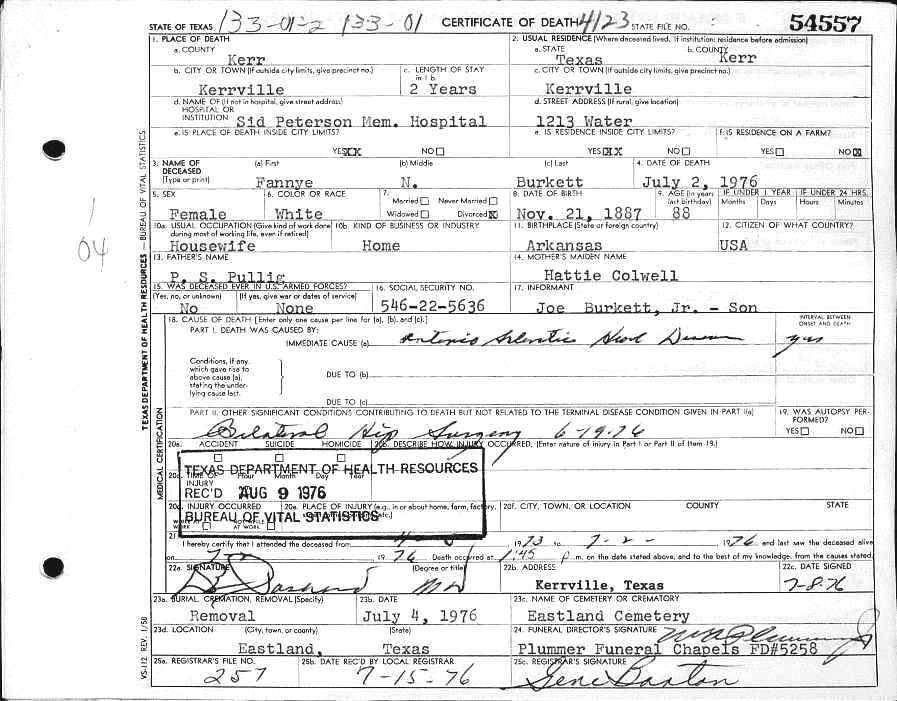 STATE OF TEXAS 133-01-2 133-01 CERTIFICATE OF DEATH 4123 STATE FILE NO. 54557
1. PLACE OF DEATH 2. USUAL RESIDENCE (Where deceased lived. If institution: residence before admission)
a. COUNTY a. STATE b. COUNTY
Kerr Texas Kerr
b. CITY OR TOWN (If outside city limits, give precinct no.) c. LENGTH OF STAY in 1 b. c. CITY OR TOWN (If outside city limits, give precinct no.)
Kerrville 2 Years Kerrville
d. NAME OF (If not in hospital, give street address) HOSPITAL OR INSTITUTION d. STREET ADDRESS (If rural, give location)
Sid Peterson Mem. Hospital 1213 Water
e. IS PLACE OF DEATH INSIDE CITY LIMITS? e. IS RESIDENCE INSIDE CITY LIMITS? f. IS RESIDENCE ON A FARM?
YES XX NO YES XX NO YES NO X
3. NAME OF DECEASED (Type or print) (a) First (b) Middle (c) Last 4. DATE OF DEATH
Fannye N. Burkett July 2, 1976
5. SEX 6. COLOR OR RACE 7. Married Never Married 8. DATE OF BIRTH 9. AGE (In years last birthday) IF UNDER 1 YEAR IF UNDER 24 HRS.
Months Days Hours Minutes
Female White Widowed Divorced X Nov. 21, 1887 88
10a. USUAL OCCUPATION (Give kind of work done during most of working life, even if retired) 10b. KIND OF BUSINESS OR INDUSTRY 11. BIRTHPLACE (State or foreign country) 12. CITIZEN OF WHAT COUNTRY?
Housewife Home Arkansas USA
13. FATHER'S NAME 14. MOTHER'S MAIDEN NAME
P. S. Pullig Hattie Colwell
15. WAS DECEASED EVER IN U.S. ARMED FORCES? 16. SOCIAL SECURITY NO. 17. INFORMANT
(Yes, no, or unknown) (If yes, give war or dates of service)
No None 546-22-5636 Joe Burkett, Jr. - Son
18. CAUSE OF DEATH [Enter only one cause per line for (a), (b), and (c).] INTERVAL BETWEEN ONSET AND DEATH
PART I. DEATH WAS CAUSED BY:
IMMEDIATE CAUSE (a) yrs
Conditions, if any, which gave rise to above cause (a), stating the underlying cause last.
DUE TO (b)
DUE TO (c)
PART II. OTHER SIGNIFICANT CONDITIONS CONTRIBUTING TO DEATH BUT NOT RELATED TO THE TERMINAL DISEASE CONDITION GIVEN IN PART I(a) 19. WAS AUTOPSY PERFORMED?
Bilateral Hip Surgery 6-19-76 YES NO
20a. ACCIDENT SUICIDE HOMICIDE 20b. DESCRIBE HOW INJURY OCCURRED. (Enter nature of injury in Part I or Part II of item 18.)
TEXAS DEPARTMENT OF HEALTH RESOURCES
REC'D AUG 9 1976
BUREAU OF VITAL STATISTICS
20c. TIME OF INJURY Hour Month Day Year
20d. INJURY OCCURRED 20e. PLACE OF INJURY (e.g., in or about home, farm, factory, etc.) 20f. CITY, TOWN, OR LOCATION COUNTY STATE
WORK NOT WHILE AT WORK
21. I hereby certify that I attended the deceased from 1973 to 7-2- 1976 and last saw the deceased alive
on 1976 Death occurred at 1:45 P m. on the date stated above, and to the best of my knowledge, from the causes stated.
22a. SIGNATURE (Degree or title) 22b. ADDRESS 22c. DATE SIGNED
MD Kerrville, Texas 7-8-76
23a. BURIAL, CREMATION, REMOVAL (Specify) 23b. DATE 23c. NAME OF CEMETERY OR CREMATORY
Removal July 4, 1976 Eastland Cemetery
23d. LOCATION (City, town, or county) (State) 24. FUNERAL DIRECTOR'S SIGNATURE
Eastland, Texas Plummer Funeral Chapels FD#5258
25a. REGISTRAR'S FILE NO. 25b. DATE REC'D BY LOCAL REGISTRAR 25c. REGISTRAR'S SIGNATURE
257 7-15-76 Gene Barton
TEXAS DEPARTMENT OF HEALTH RESOURCES — BUREAU OF VITAL STATISTICS
MEDICAL CERTIFICATION
VS-112 REV. 1/58
1
04